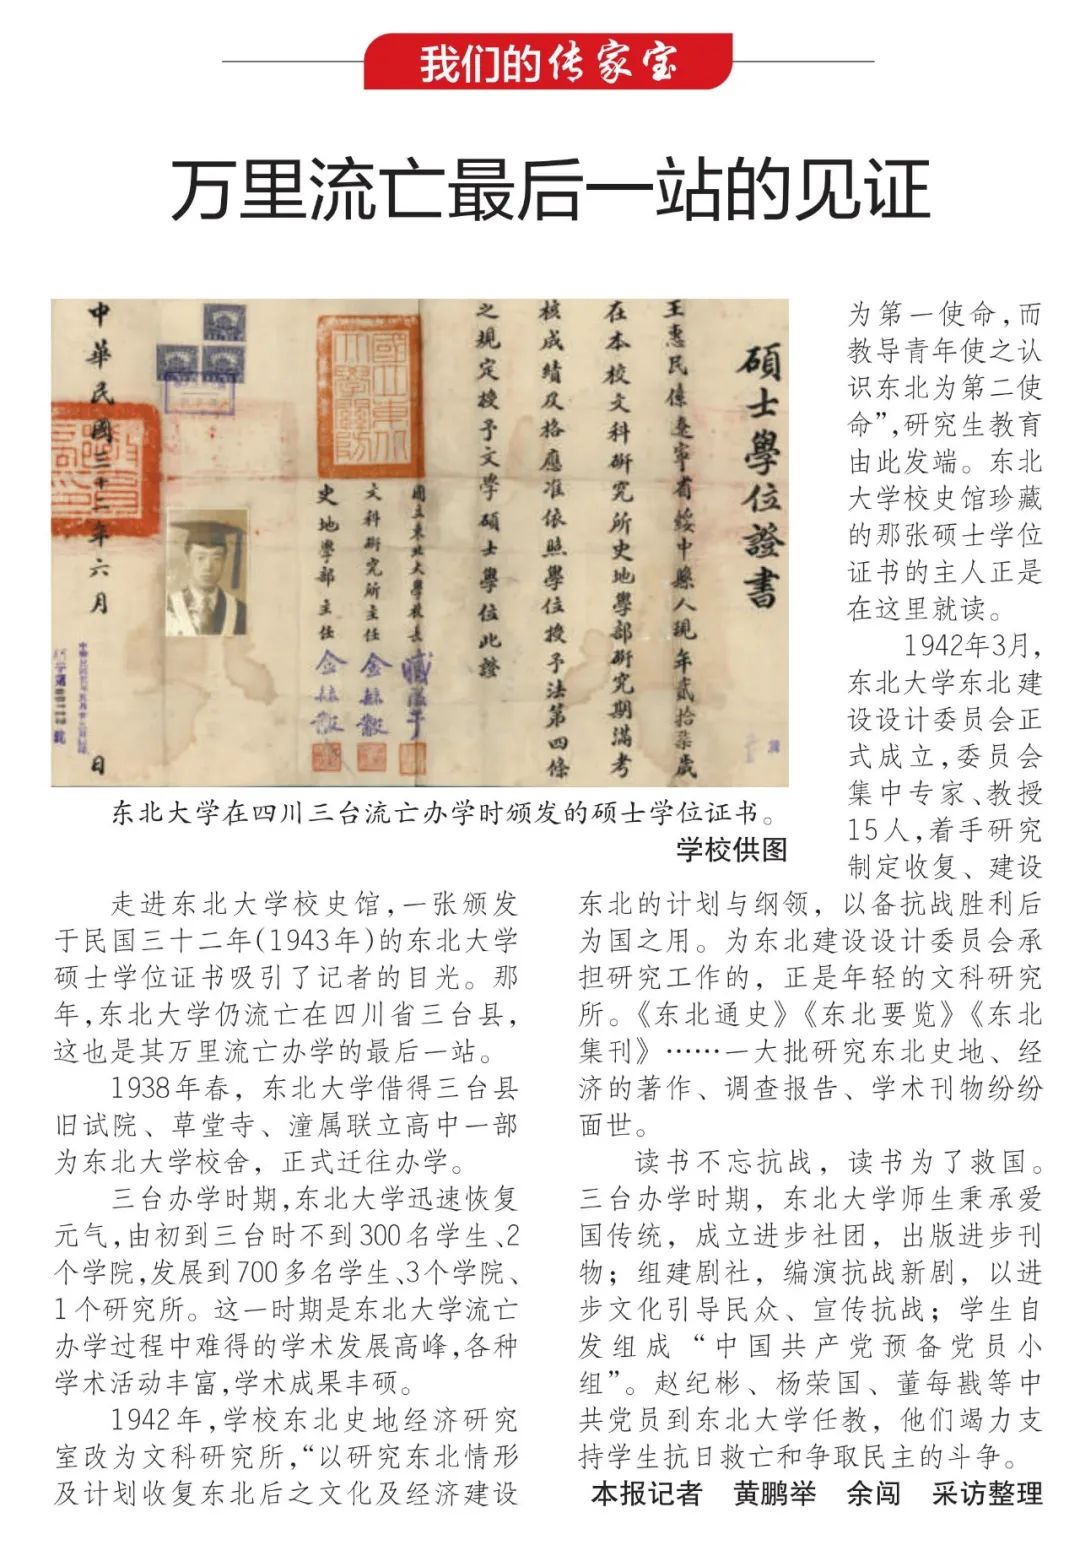 我们的传家宝
万里流亡最后一站的见证
硕士學位證書
王惠民係遼寧省綏中縣人現年貳拾柒歲
在本校文科研究所史地學部研究期滿考
核成績及格應准依照學位授予法第四條
之規定授予文學碩士學位此證
國立東北大學校長
文科研究所主任 金毓黻
史地學部主任 金毓黻
中華民國三十二年六月 日
东北大学在四川三台流亡办学时颁发的硕士学位证书。
学校供图
走进东北大学校史馆,一张颁发
于民国三十二年(1943年)的东北大学
硕士学位证书吸引了记者的目光。那
年,东北大学仍流亡在四川省三台县,
这也是其万里流亡办学的最后一站。
1938年春，东北大学借得三台县
旧试院、草堂寺、潼属联立高中一部
为东北大学校舍，正式迁往办学。
三台办学时期,东北大学迅速恢复
元气,由初到三台时不到300名学生、2
个学院,发展到700多名学生、3个学院、
1个研究所。这一时期是东北大学流亡
办学过程中难得的学术发展高峰,各种
学术活动丰富,学术成果丰硕。
1942年,学校东北史地经济研究
室改为文科研究所,“以研究东北情形
及计划收复东北后之文化及经济建设
为第一使命,而
教导青年使之认
识东北为第二使
命”,研究生教育
由此发端。东北
大学校史馆珍藏
的那张硕士学位
证书的主人正是
在这里就读。
1942年3月,
东北大学东北建
设设计委员会正
式成立,委员会
集中专家、教授
15人,着手研究
制定收复、建设
东北的计划与纲领，以备抗战胜利后
为国之用。为东北建设设计委员会承
担研究工作的，正是年轻的文科研究
所。《东北通史》《东北要览》《东北
集刊》……一大批研究东北史地、经
济的著作、调查报告、学术刊物纷纷
面世。
读书不忘抗战，读书为了救国。
三台办学时期，东北大学师生秉承爱
国传统，成立进步社团，出版进步刊
物；组建剧社，编演抗战新剧，以进
步文化引导民众、宣传抗战；学生自
发组成“中国共产党预备党员小
组”。赵纪彬、杨荣国、董每戡等中
共党员到东北大学任教，他们竭力支
持学生抗日救亡和争取民主的斗争。
本报记者 黄鹏举 余闯 采访整理